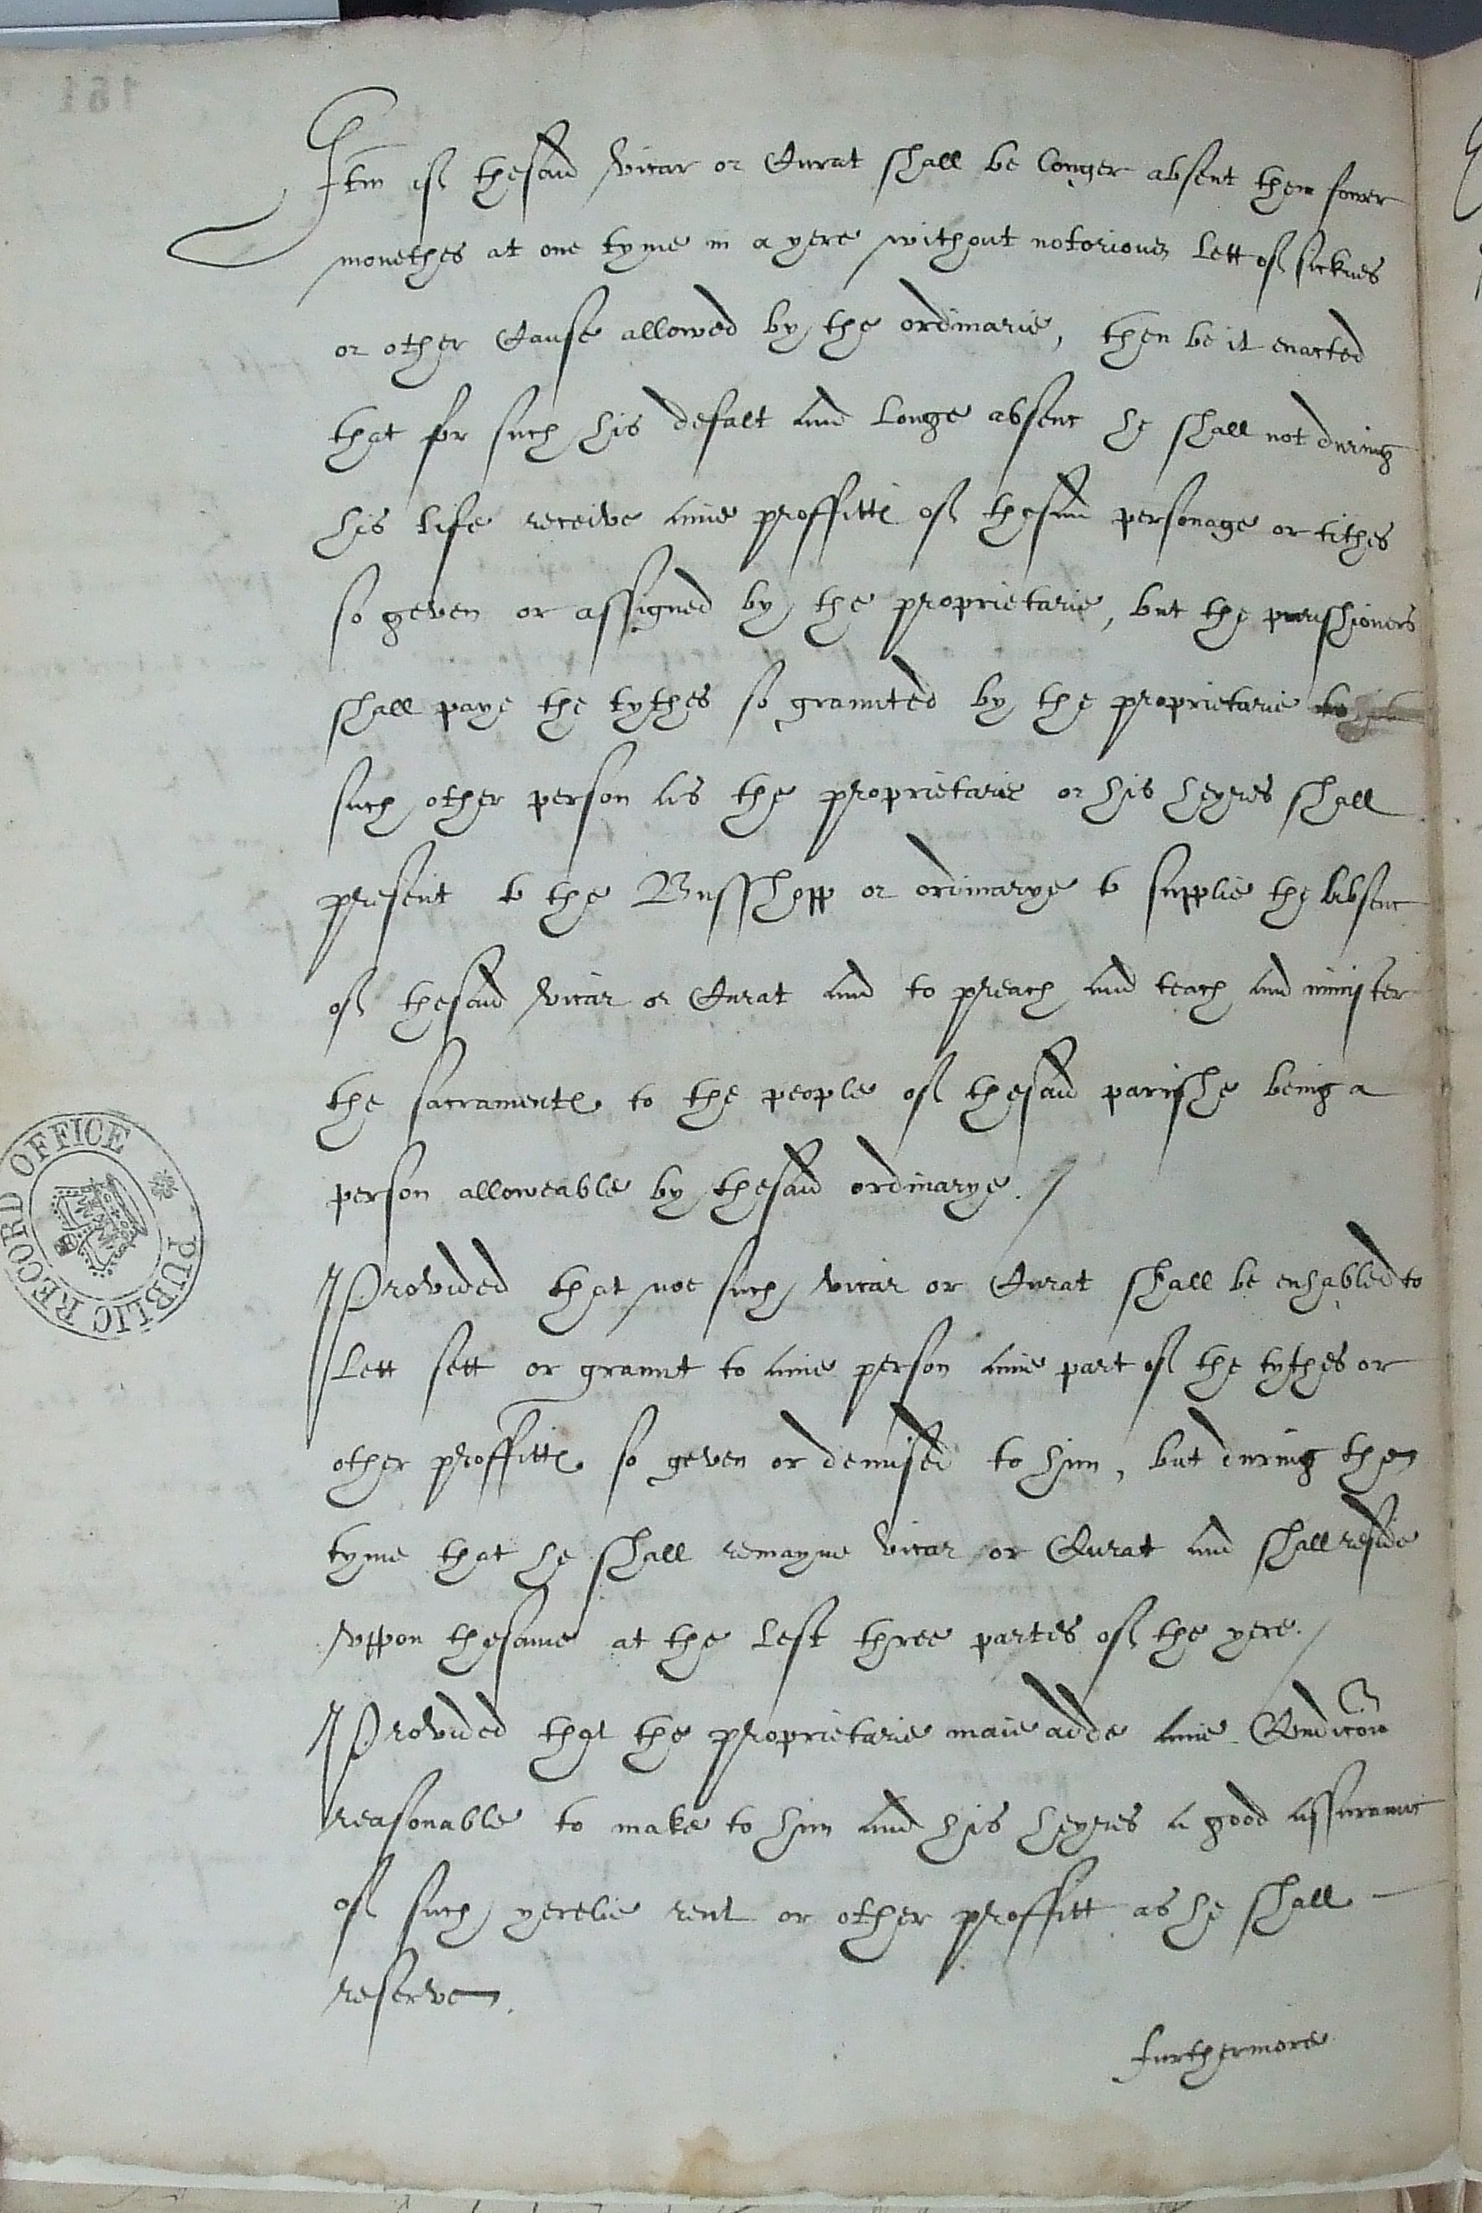 161
Itm if thesaid vicar or Curat shall be longer absent then fower
monethes at one tyme in a yere without notorious lett of sicknes
or other Cause allowed by the ordinarie, then be it enacted
that for such his defalt and longe absenc he shall not during
his life receive anie proffittes of thesaid personage or tithes
so geven or assigned by the proprietarie, but the parishioners
shall paye the tythes so graunted by the proprietarie to
such other person as the proprietarie or his heyres shall
present to the Busshopp or ordinarye to supplie the absenc
of thesaid vicar or Curat and to preach and teach and minister
the sacramentes to the people of thesaid parishe being a
person alloweable by thesaid ordinarye. /
Provided that noe such vicar or Curat shall be enhabled to
lett sett or graunt to anie person anie part of the tythes or
other proffittes so geven or demised to him, but during the
tyme that he shall remayne vicar or Curat and shall reside
uppon thesame at the lest three partes of the yere. /
Provided that the proprietarie maie adde anie Condicon
reasonable to make to him and his heyres a good assuraunc
of such yerelie rent or other proffitt as he shall
reserve.
furthermore
PUBLIC RECORD OFFICE